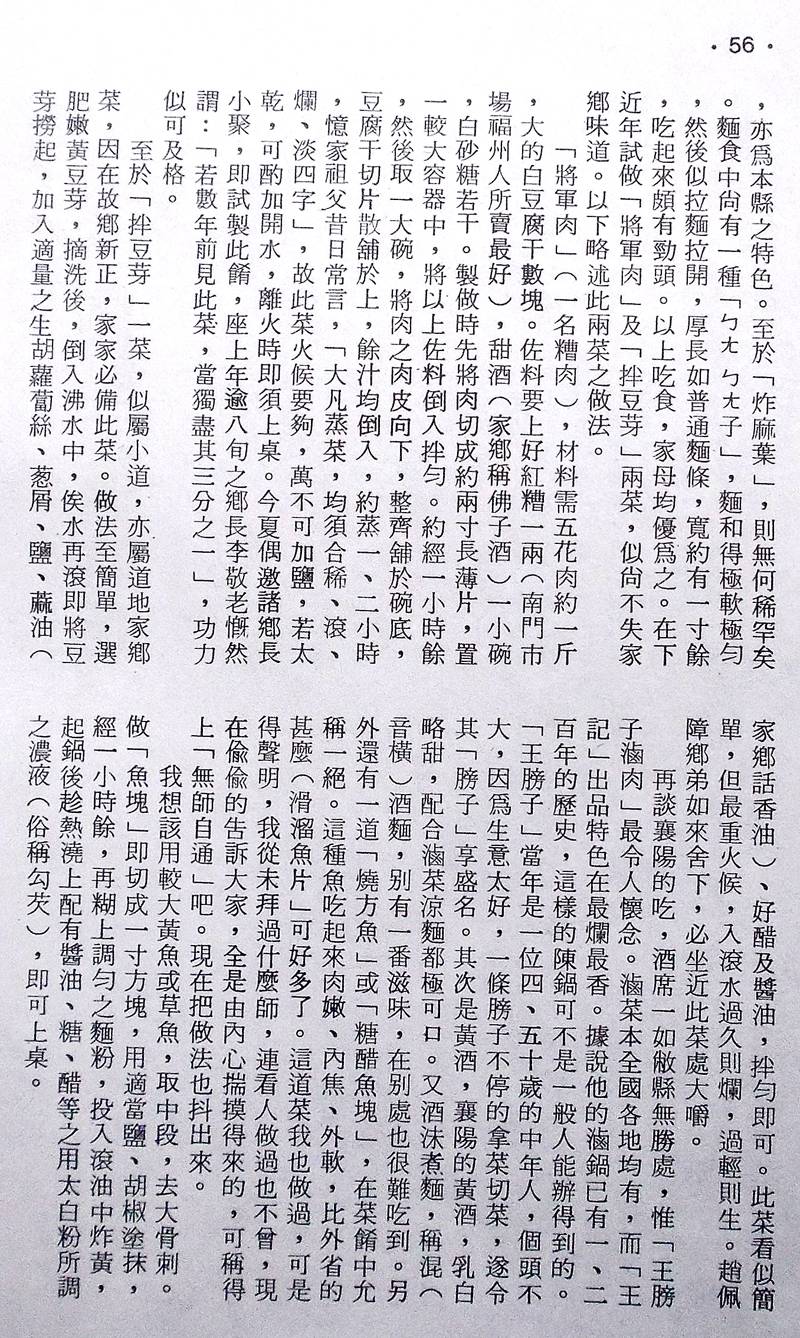 • 56 •
，亦爲本縣之特色。至於「炸麻葉」，則無何稀罕矣
。麵食中尙有一種「ㄅㄤ ㄅㄤ子」，麵和得極軟極勻
，然後似拉麵拉開，厚長如普通麵條，寬約有一寸餘
，吃起來頗有勁頭。以上吃食，家母均優爲之。在下
近年試做「將軍肉」及「拌豆芽」兩菜，似尙不失家
鄉味道。以下略述此兩菜之做法。
「將軍肉」（一名糟肉），材料需五花肉約一斤
，大的白豆腐干數塊。佐料要上好紅糟一兩（南門市
場福州人所賣最好），甜酒（家鄉稱佛子酒）一小碗
，白砂糖若干。製做時先將肉切成約兩寸長薄片，置
一較大容器中，將以上佐料倒入拌勻。約經一小時餘
，然後取一大碗，將肉之肉皮向下，整齊舖於碗底，
豆腐干切片散舖於上，餘汁均倒入，約蒸一、二小時
，憶家祖父昔日常言，「大凡蒸菜，均須合稀、滾、
爛、淡四字」，故此菜火候要夠，萬不可加鹽，若太
乾，可酌加開水，離火時即須上桌。今夏偶邀諸鄉長
小聚，即試製此餚，座上年逾八旬之鄉長李敬老慨然
謂：「若數年前見此菜，當獨盡其三分之一」，功力
似可及格。
至於「拌豆芽」一菜，似屬小道，亦屬道地家鄉
菜，因在故鄉新正，家家必備此菜。做法至簡單，選
肥嫩黃豆芽，摘洗後，倒入沸水中，俟水再滾即將豆
芽撈起，加入適量之生胡蘿蔔絲、葱屑、鹽、蔴油（
家鄉話香油）、好醋及醬油，拌勻即可。此菜看似簡
單，但最重火候，入滾水過久則爛，過輕則生。趙佩
障鄉弟如來舍下，必坐近此菜處大嚼。
再談襄陽的吃，酒席一如敝縣無勝處，惟「王膀
子滷肉」最令人懷念。滷菜本全國各地均有，而「王
記」出品特色在最爛最香。據說他的滷鍋已有一、二
百年的歷史，這樣的陳鍋可不是一般人能辦得到的。
「王膀子」當年是一位四、五十歲的中年人，個頭不
大，因爲生意太好，一條膀子不停的拿菜切菜，遂令
其「膀子」享盛名。其次是黃酒，襄陽的黃酒，乳白
略甜，配合滷菜涼麵都極可口。又酒沫煮麵，稱混（
音橫）酒麵，別有一番滋味，在別處也很難吃到。另
外還有一道「燒方魚」或「糖醋魚塊」，在菜餚中允
稱一絕。這種魚吃起來肉嫩、內焦、外軟，比外省的
甚麼（滑溜魚片）可好多了。這道菜我也做過，可是
得聲明，我從未拜過什麼師，連看人做過也不曾，現
在偸偸的告訴大家，全是由內心揣摸得來的，可稱得
上「無師自通」吧。現在把做法也抖出來。
我想該用較大黃魚或草魚，取中段，去大骨刺。
做「魚塊」即切成一寸方塊，用適當鹽、胡椒塗抹，
經一小時餘，再糊上調勻之麵粉，投入滾油中炸黃，
起鍋後趁熱澆上配有醬油、糖、醋等之用太白粉所調
之濃液（俗稱勾芡），即可上桌。